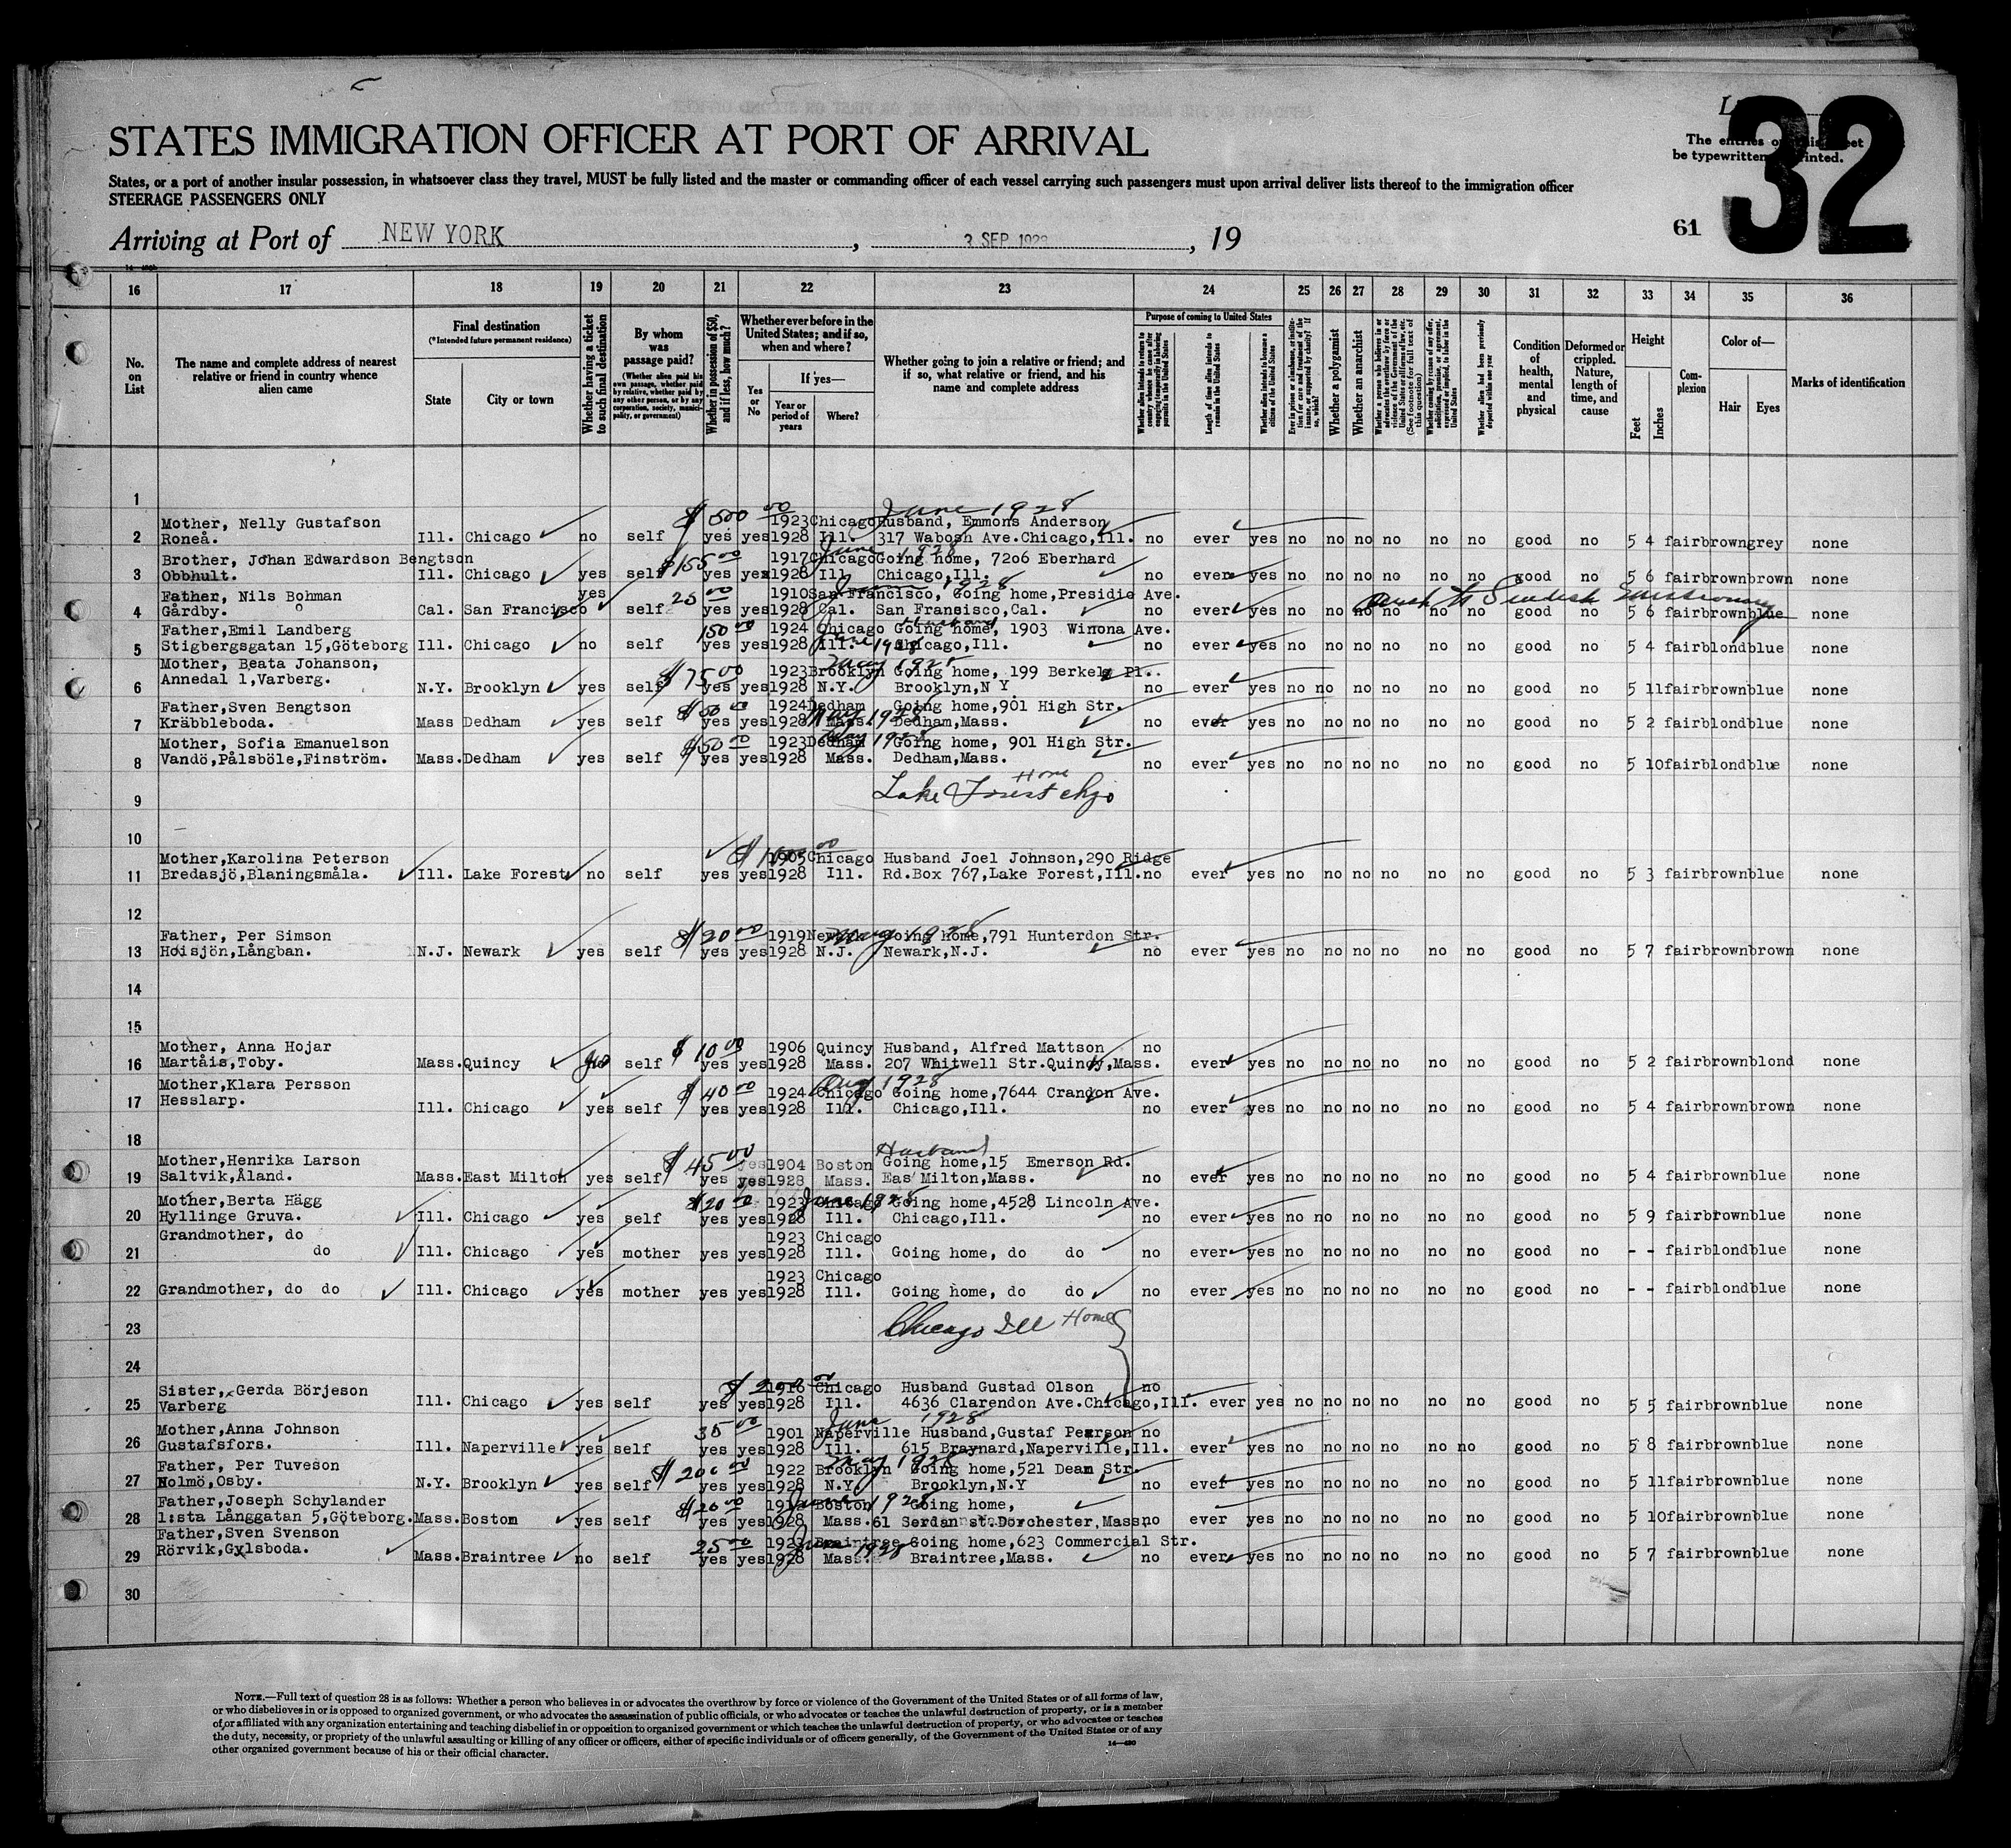 STATES IMMIGRATION OFFICER AT PORT OF ARRIVAL
The entries on this sheet
be typewritten or printed.
32
States, or a port of another insular possession, in whatsoever class they travel, MUST be fully listed and the master or commanding officer of each vessel carrying such passengers must upon arrival deliver lists thereof to the immigration officer
STEERAGE PASSENGERS ONLY
Arriving at Port of NEW YORK, 3 SEP 1928, 19
61
16 17 18 19 20 21 22 23 24 25 26 27 28 29 30 31 32 33 34 35 36
No. on List
The name and complete address of nearest relative or friend in country whence alien came
Final destination
(*Intended future permanent residence)
State
City or town
Whether having a ticket to such final destination
By whom was passage paid?
(Whether alien paid his own passage, whether paid by relative, whether paid by any other person, or by any corporation, society, municipality, or government)
Whether in possession of $50, and if less, how much?
Whether ever before in the United States; and if so, when and where?
Yes or No
If yes—
Year or period of years
Where?
Whether going to join a relative or friend; and if so, what relative or friend, and his name and complete address
Purpose of coming to United States
Length of time alien intends to remain in the United States
Whether alien intends to become a citizen of the United States
Whether a polygamist
Whether an anarchist
Whether alien had been previously deported within one year
Condition of health, mental and physical
Deformed or crippled. Nature, length of time, and cause
Height
Feet
Inches
Complexion
Color of—
Hair
Eyes
Marks of identification
1
June 1928
Mother, Nelly Gustafson $500 00 1923 Chicago Husband, Emmons Anderson
2 Roneå. Ill. Chicago no self yes yes 1928 Ill. 317 Wabosh Ave.Chicago,Ill. no ever yes no no no no no no good no 5 4 fair brown grey none
Brother, Johan Edwardson Bengtson $155 00 1917 Chicago June 1928 Going home, 7206 Eberhard
3 Obbhult. Ill. Chicago yes self yes yes 1928 Ill. Chicago,Ill. no ever yes no no no no no no good no 5 6 fair brown brown none
Father, Nils Bohman yes 25 00 1910 San Francisco, Going home,Presidio Ave.
4 Gårdby. Cal. San Francisco self yes yes 1928 Cal. San Fransisco,Cal. no ever yes no no no no no no good no 5 6 fair brown blue none
Father,Emil Landberg 150 00 1924 Chicago Husband Going home, 1903 Winona Ave.
5 Stigbergsgatan 15,Göteborg Ill. Chicago no self yes yes 1928 Ill. June 1928 Chicago,Ill. no ever yes no no no no no no good no 5 4 fair blond blue none
Mother, Beata Johanson, $75 00 1923 Brooklyn May 1928 Going home, 199 Berkele Pl..
6 Annedal 1,Varberg. N.Y. Brooklyn yes self yes yes 1928 N.Y. Brooklyn,N Y no ever yes no no no no no no good no 5 11 fair brown blue none
Father,Sven Bengtson $50 00 1924 Dedham Going home,901 High Str.
7 Kräbbleboda. Mass Dedham yes self yes yes 1928 Mass. May 1928 Dedham,Mass. no ever yes no no no no no no good no 5 2 fair blond blue none
Mother, Sofia Emanuelson $50 00 1923 Dedham May 1928 Going home, 901 High Str.
8 Vandö,Pålsböle,Finström. Mass. Dedham yes self yes yes 1928 Mass. Dedham,Mass. no ever yes no no no no no no good no 5 10 fair blond blue none
9 Lake Forest Home Chgo
10
Mother,Karolina Peterson 1905 Chicago Husband Joel Johnson,290 Ridge
11 Bredasjö,Blaningsmåla. Ill. Lake Forest no self yes yes 1928 Ill. Rd.Box 767,Lake Forest,Ill. no ever yes no no no no no no good no 5 3 fair brown blue none
12
Father, Per Simson $20 00 1919 Newark May 1928 Going home,791 Hunterdon Str.
13 Höisjön,Långban. N.J. Newark yes self yes yes 1928 N.J. Newark,N.J. no ever yes no no no no no no good no 5 7 fair brown brown none
14
15
Mother, Anna Hojar $10 00 1906 Quincy Husband, Alfred Mattson no
16 Martåis,Toby. Mass. Quincy self yes yes 1928 Mass. 207 Whitwell Str.Quincy,Mass. ever yes no no no no no no good no 5 2 fair brown blond none
Mother,Klara Persson $40 00 1924 Chicago Aug 1928 Going home,7644 Crandon Ave.
17 Hesslarp. Ill. Chicago yes self yes yes 1928 Ill. Chicago,Ill. no ever yes no no no no no no good no 5 4 fair brown brown none
18
Mother,Henrika Larson $45 00 yes 1904 Boston Husband Going home,15 Emerson Rd.
19 Saltvik,Åland. Mass. East Milton yes self yes yes 1928 Mass. Eas Milton,Mass. no ever yes no no no no no no good no 5 4 fair brown blue none
Mother,Berta Hägg $20 00 1923 Chicago June 1928 Going home,4528 Lincoln Ave.
20 Hyllinge Gruva. Ill. Chicago yes self yes yes 1928 Ill. Chicago,Ill. no ever yes no no no no no no good no 5 9 fair brown blue none
Grandmother, do 1923 Chicago
21 do Ill. Chicago yes mother yes yes 1928 Ill. Going home, do do no ever yes no no no no no no good no - - fair blond blue none
1923 Chicago
22 Grandmother, do do Ill. Chicago yes mother yes yes 1928 Ill. Going home, do do no ever yes no no no no no no good no - - fair blond blue none
23 Chicago Ill Home
24
Sister, Gerda Börjeson 1916 Chicago Husband Gustad Olson no
25 Varberg Ill. Chicago yes self yes yes 1928 Ill. 4636 Clarendon Ave.Chicago,Ill. ever yes no no no no no no good no 5 5 fair brown blue none
Mother,Anna Johnson 35 00 1901 Naperville June 1928 Husband,Gustaf Pearson no
26 Gustafsfors. Ill. Naperville yes self yes yes 1928 Ill. 615 Braynard,Naperville,Ill. ever yes no no no no no no good no 5 8 fair brown blue none
Father, Per Tuveson $200 00 1922 Brooklyn May 1928 Going home,521 Dean Str.
27 Holmö,Osby. N.Y. Brooklyn yes self yes yes 1928 N.Y. Brooklyn,N.Y no ever yes no no no no no no good no 5 11 fair brown blue none
Father,Joseph Schylander $20 00 Boston June 1928 Going home,
28 1:sta Långgatan 5,Göteborg. Mass. Boston yes self yes yes 1928 Mass. 61 Serdan st.Dorchester,Mass. no ever yes no no no no no no good no 5 10 fair blond blue none
Father,Sven Svenson 25 00 1923 Braintree Going home,623 Commercial Str.
29 Rörvik,Gylsboda. Mass. Braintree no self yes yes 1928 Mass. June 1928 Braintree,Mass. no ever yes no no no no no no good no 5 7 fair brown blue none
30
NOTE.—Full text of question 28 is as follows: Whether a person who believes in or advocates the overthrow by force or violence of the Government of the United States or of all forms of law,
or who disbelieves in or is opposed to organized government, or who advocates the assassination of public officials, or who advocates or teaches the unlawful destruction of property, or is a member
of or affiliated with any organization entertaining and teaching disbelief in or opposition to organized government or which teaches the unlawful destruction of property, or who advocates or teaches
the duty, necessity, or propriety of the unlawful assaulting or killing of any officer or officers, either of specific individuals or of officers generally, of the Government of the United States or of any
other organized government because of his or their official character.
14—430